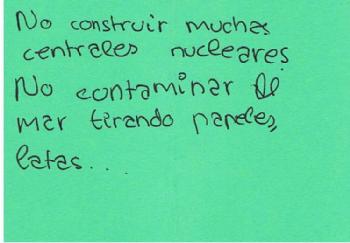 No construir muchas
centrales nucleares
No contaminar el
mar tirando papeles,
latas...